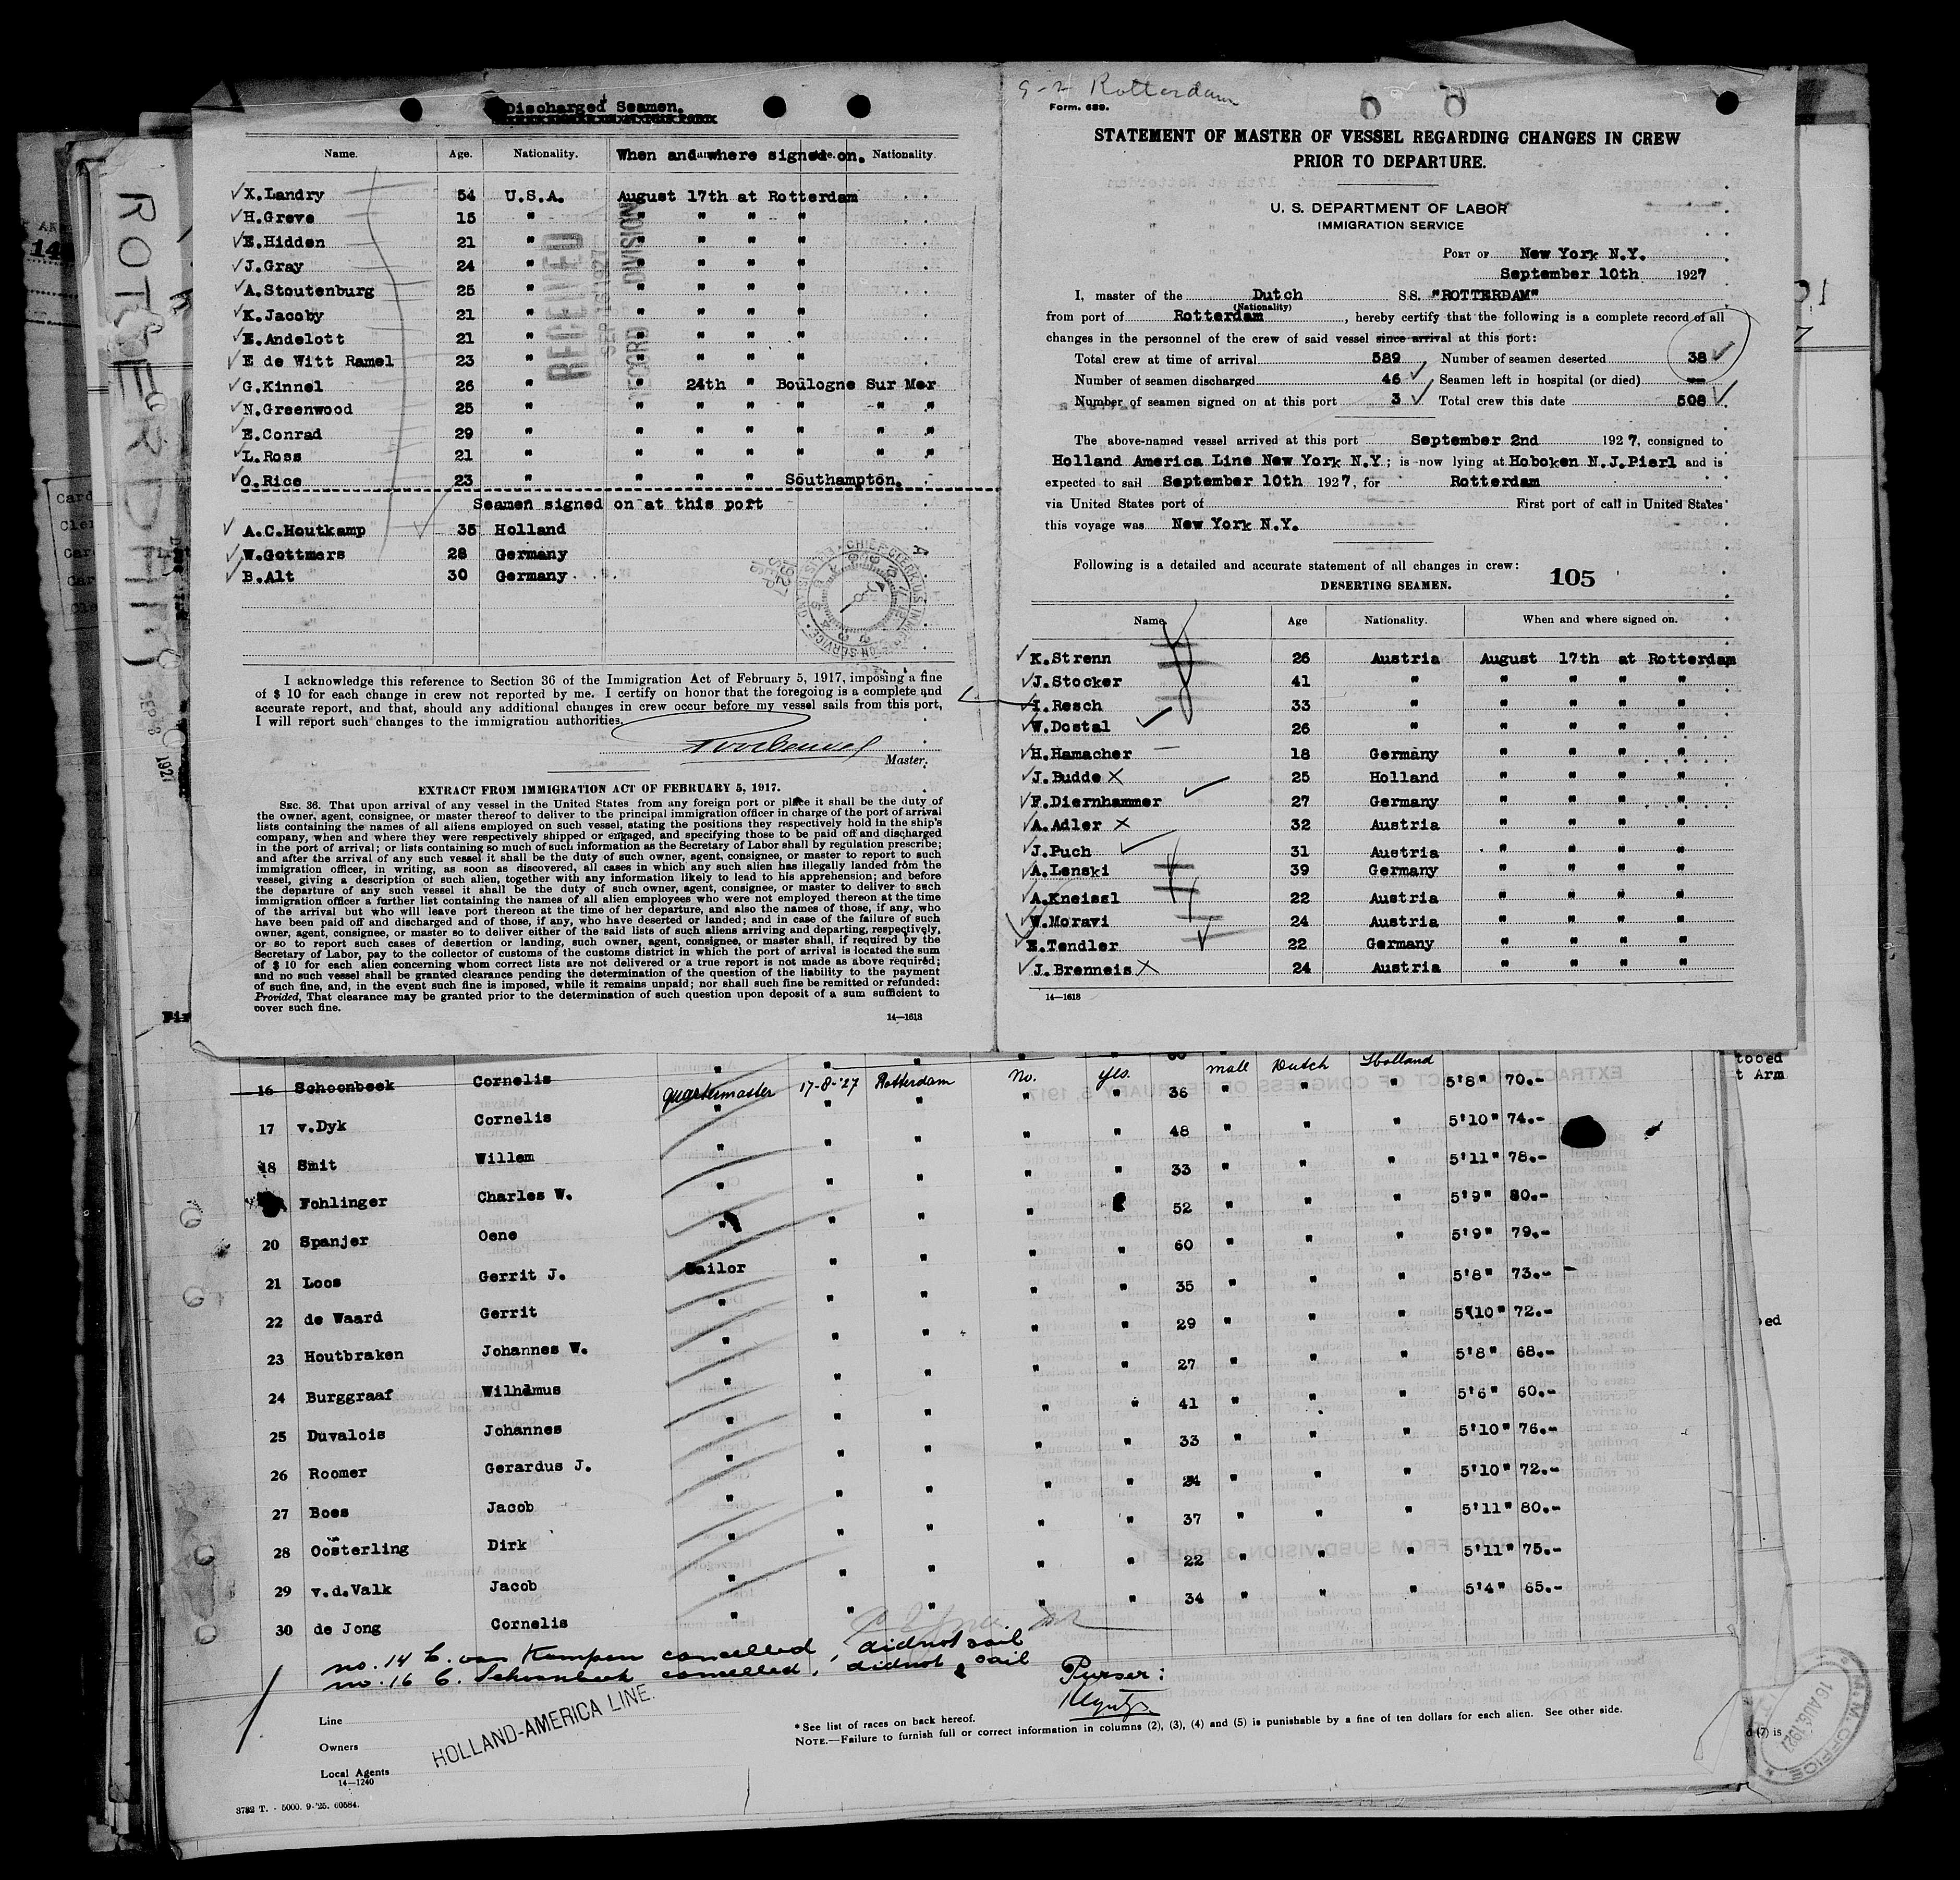 Discharged Seamen.
Name. Age. Nationality. When and where signed on. Nationality.
X.Landry 54 U.S.A. August 17th at Rotterdam
H.Greve 15 " " " " "
E.Hidden 21 " " " " "
J.Gray 24 " " " " "
A.Stoutenburg 25 " " " " "
K.Jacoby 21 " " " " "
E.Andelott 21 " " " " "
E de Witt Ramel 23 " " " " "
G.Kinnel 26 " " 24th " Boulogne Sur Mer
N.Greenwood 25 " " " " " " "
E.Conrad 29 " " " " " " "
L.Ross 21 " " " " " " "
O.Rice 23 " " " " Southampton.
Seamen signed on at this port
A.C.Houtkamp 35 Holland
W.Gottmers 28 Germany
B.Alt 30 Germany
RECEIVED
RECORD DIVISION
I acknowledge this reference to Section 36 of the Immigration Act of February 5, 1917, imposing a fine
of $ 10 for each change in crew not reported by me. I certify on honor that the foregoing is a complete and
accurate report, and that, should any additional changes in crew occur before my vessel sails from this port,
I will report such changes to the immigration authorities.
Master.
EXTRACT FROM IMMIGRATION ACT OF FEBRUARY 5, 1917.
SEC. 36. That upon arrival of any vessel in the United States from any foreign port or place it shall be the duty of
the owner, agent, consignee, or master thereof to deliver to the principal immigration officer in charge of the port of arrival
lists containing the names of all aliens employed on such vessel, stating the positions they respectively hold in the ship's
company, when and where they were respectively shipped or engaged, and specifying those to be paid off and discharged
in the port of arrival; or lists containing so much of such information as the Secretary of Labor shall by regulation prescribe;
and after the arrival of any such vessel it shall be the duty of such owner, agent, consignee, or master to report to such
immigration officer, in writing, as soon as discovered, all cases in which any such alien has illegally landed from the
vessel, giving a description of such alien, together with any information likely to lead to his apprehension; and before
the departure of any such vessel it shall be the duty of such owner, agent, consignee, or master to deliver to such
immigration officer a further list containing the names of all alien employees who were not employed thereon at the time
of the arrival but who will leave port thereon at the time of her departure, and also the names of those, if any, who
have been paid off and discharged and of those, if any, who have deserted or landed; and in case of the failure of such
owner, agent, consignee, or master so to deliver either of the said lists of such aliens arriving and departing, respectively,
or so to report such cases of desertion or landing, such owner, agent, consignee, or master shall, if required by the
Secretary of Labor, pay to the collector of customs of the customs district in which the port of arrival is located the sum
of $ 10 for each alien concerning whom correct lists are not delivered or a true report is not made as above required;
and no such vessel shall be granted clearance pending the determination of the question of the liability to the payment
of such fine, and, in the event such fine is imposed, while it remains unpaid; nor shall such fine be remitted or refunded:
Provided, That clearance may be granted prior to the determination of such question upon deposit of a sum sufficient to
cover such fine.
14—1613
9-2 Rotterdam
Form. 689.
STATEMENT OF MASTER OF VESSEL REGARDING CHANGES IN CREW
PRIOR TO DEPARTURE.
U. S. DEPARTMENT OF LABOR
IMMIGRATION SERVICE
PORT OF New York N.Y.
September 10th 1927
I, master of the Dutch SS. "ROTTERDAM"
(Nationality)
from port of Rotterdam, hereby certify that the following is a complete record of all
changes in the personnel of the crew of said vessel since arrival at this port:
Total crew at time of arrival 589 Number of seamen deserted 38
Number of seamen discharged 46 Seamen left in hospital (or died) --
Number of seamen signed on at this port 3 Total crew this date 508
The above-named vessel arrived at this port September 2nd 1927, consigned to
Holland America Line New York N.Y; is now lying at Hoboken N.J.Pier1 and is
expected to sail September 10th 1927, for Rotterdam
via United States port of First port of call in United States
this voyage was New York N.Y.
Following is a detailed and accurate statement of all changes in crew:
105
DESERTING SEAMEN.
Name Age Nationality. When and where signed on.
K.Strenn 26 Austria August 17th at Rotterdam
J.Stocker 41 " " " " "
I.Resch 33 " " " " "
W.Dostal 26 " " " " "
H.Hamacher 18 Germany " " " "
J.Budde 25 Holland " " " "
F.Diernhammer 27 Germany " " " "
A.Adler 32 Austria " " " "
J.Puch 31 Austria " " " "
A.Lenski 39 Germany " " " "
A.Kneissl 22 Austria " " " "
W.Moravi 24 Austria " " " "
E.Tendler 22 Germany " " " "
J.Brenneis 24 Austria " " " "
14—1613
16 Schoonbeek Cornelis quartermaster 17-8-'27 Rotterdam No. yes. 36 male Dutch Holland 5'8" 70.-
17 v.Dyk Cornelis " " " " " 48 " " " 5'10" 74.-
18 Smit Willem " " " " " 33 " " " 5'11" 78.-
Fohlinger Charles W. " " " " 52 " " " 5'9" 80.-
20 Spanjer Oene " " " " " 60 " " " 5'9" 79.-
21 Loos Gerrit J. Sailor " " " " 35 " " " 5'8" 73.-
22 de Waard Gerrit " " " " " 29 " " " 5'10" 72.-
23 Houtbraken Johannes W. " " " " " 27 " " " 5'8" 68.-
24 Burggraaf Wilhelmus " " " " " 41 " " " 5'6" 60.-
25 Duvalois Johannes " " " " " 33 " " " 5'10" 76.-
26 Roomer Gerardus J. " " " " " 24 " " " 5'10" 72.-
27 Boes Jacob " " " " " 37 " " " 5'11" 80.-
28 Oosterling Dirk " " " " " 22 " " " 5'11" 75.-
29 v.d.Valk Jacob " " " " " 34 " " " 5'4" 65.-
30 de Jong Cornelis " " "
no. 14 C. van Kampen cancelled, did not sail
no. 16 C. Schoonbeek cancelled, did not sail
Purser:
Line
Owners
HOLLAND-AMERICA LINE.
Local Agents
14—1240
*See list of races on back hereof.
NOTE.—Failure to furnish full or correct information in columns (2), (3), (4) and (5) is punishable by a fine of ten dollars for each alien. See other side.
3732 T. - 5000. 9-'25. 60584.
ROTTERDAM
tooed
t Arm
16 AUG. 1927
OFFICE